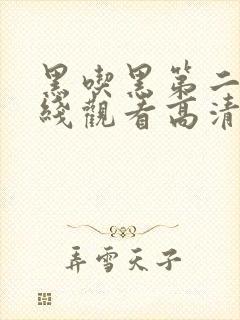 黑喫黑第二
綫觀看高清
弄雪天子